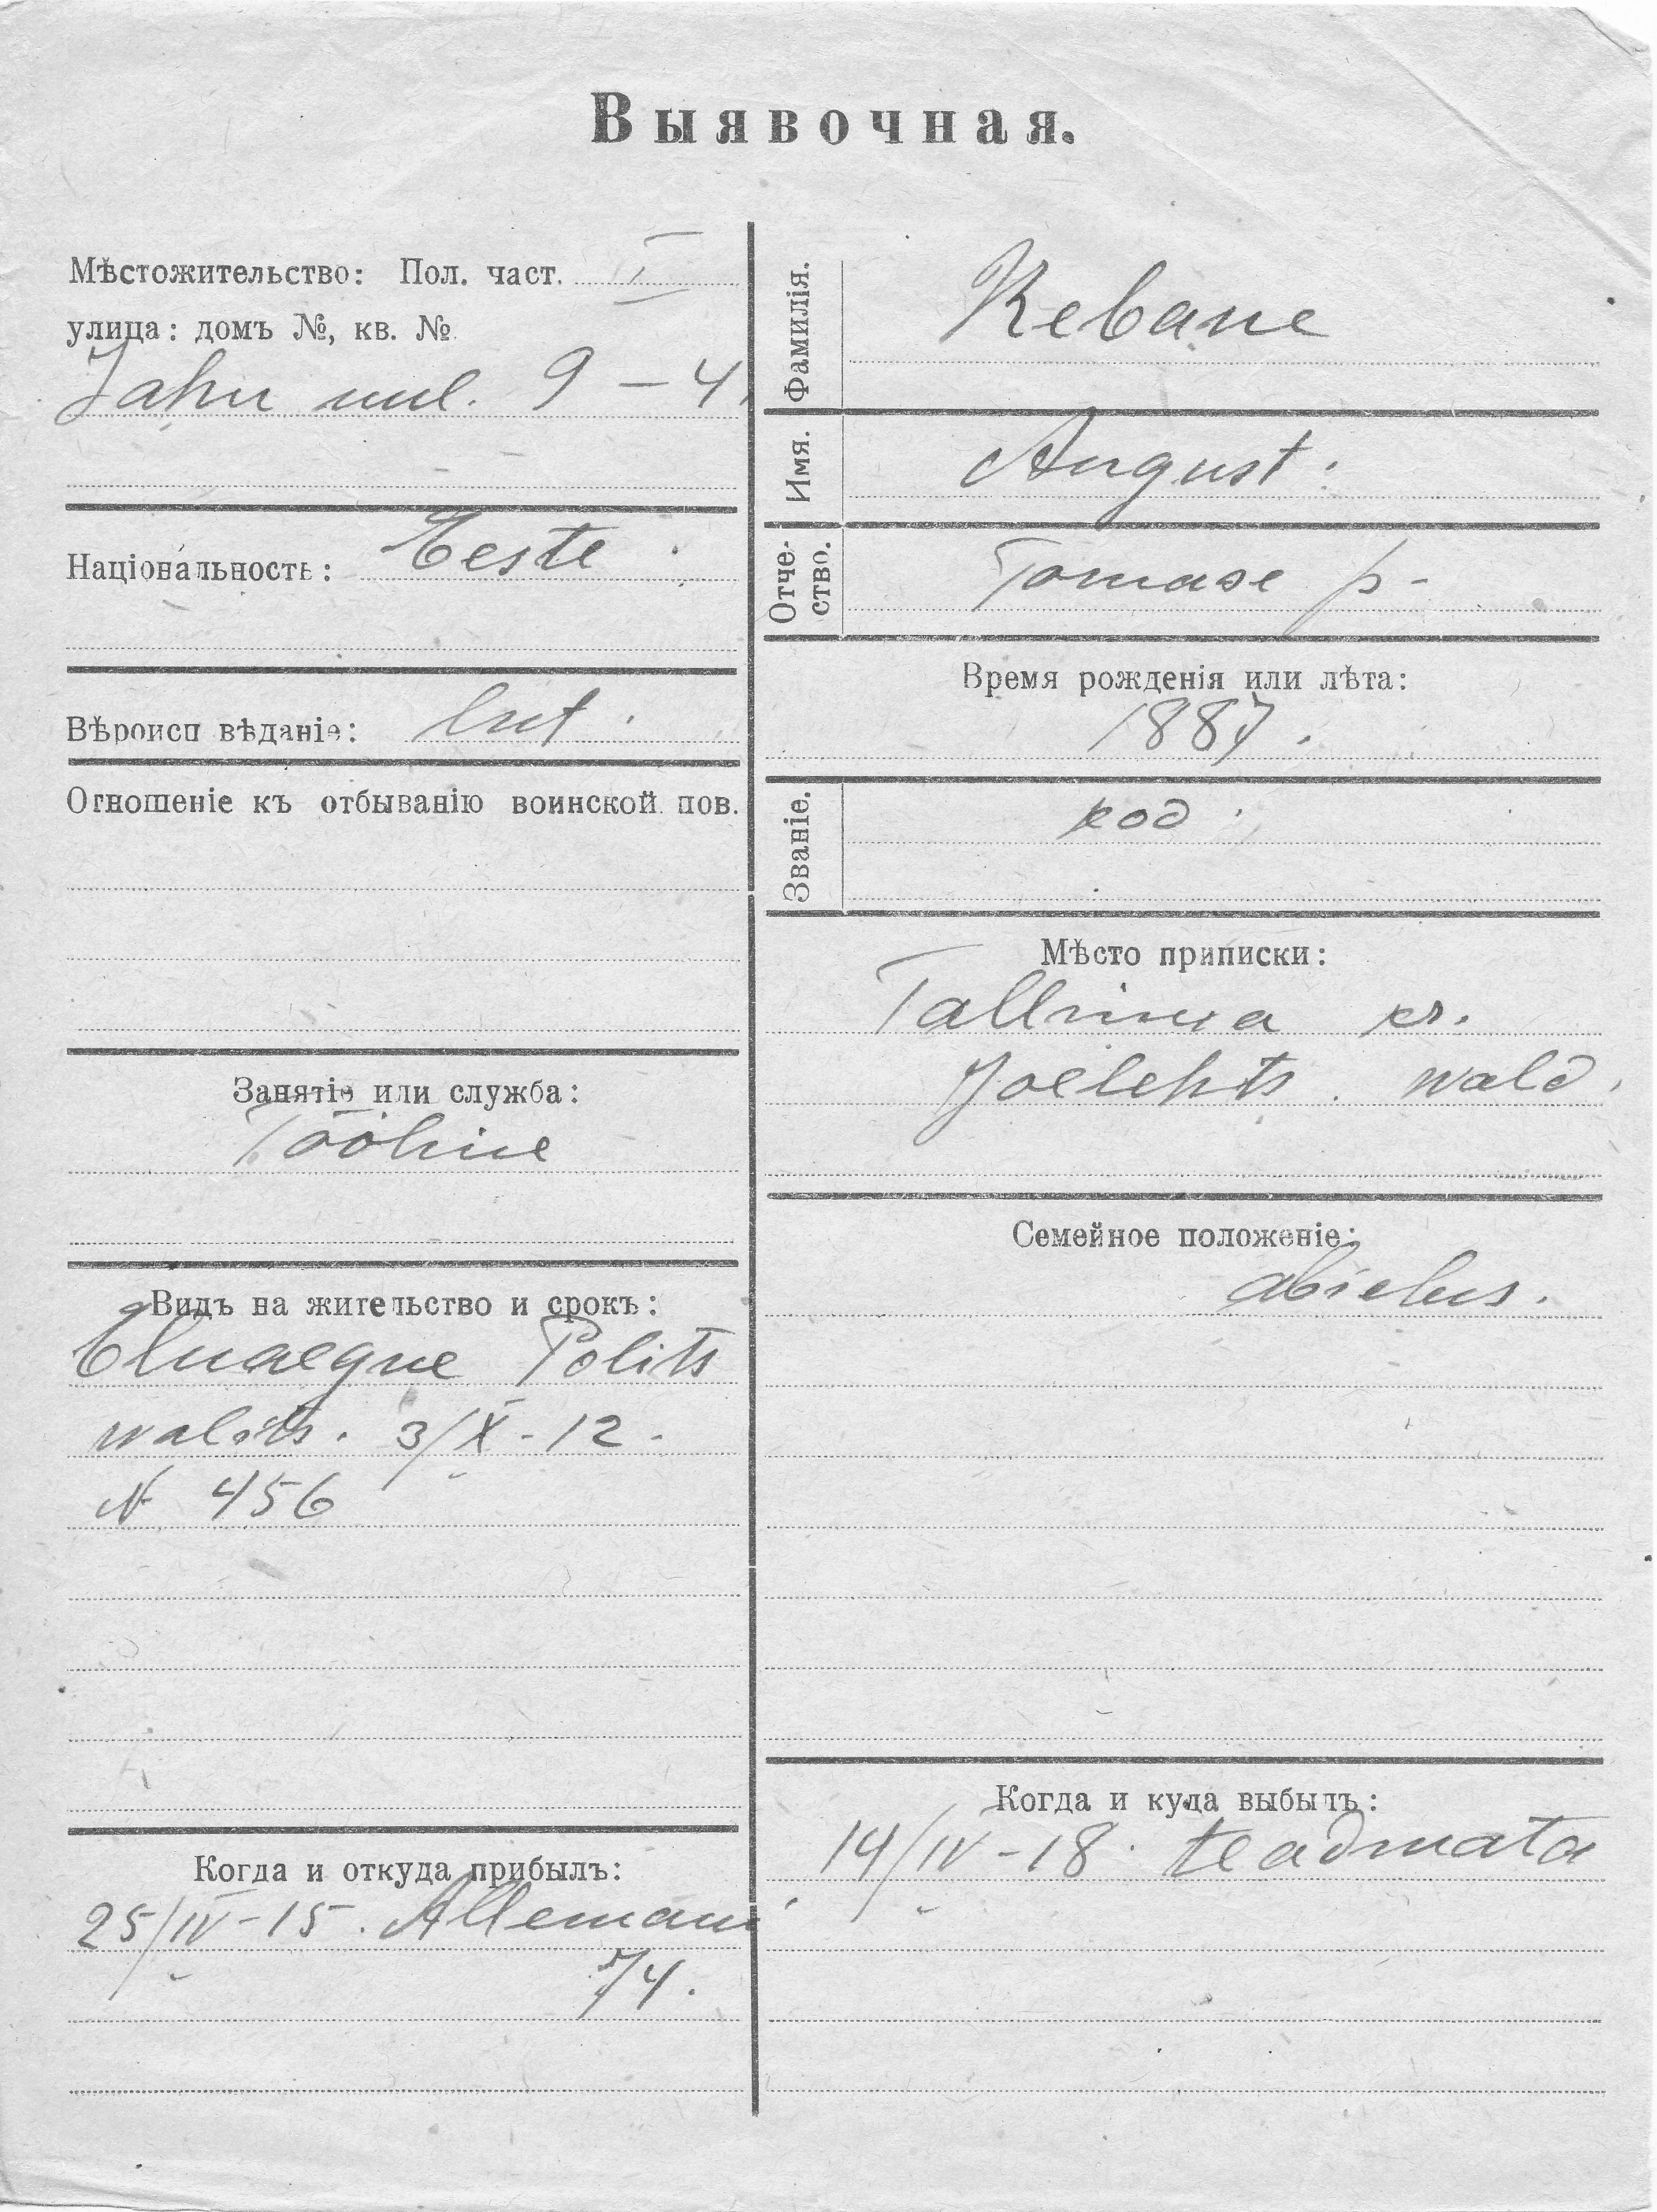 Выявочная.
Мѣстожительство: Пол. част. I
улица: домъ №, кв. №
Jahu uul. 9 – 4.
Національность: Eeste.
Вѣроисп вѣданіе: lut.
Отношеніе къ отбыванію воинской пов.
Занятіе или служба:
Tööline
Видъ на жительство и срокъ:
Eluaegne Polits
walits. 3/X - 12.
N 456
Когда и откуда прибылъ:
25/IV - 15. Allemani
74.
Фамилія. Rebane
Имя. August.
Отче-
ство. Tomase p-
Время рожденія или лѣта:
1887.
Званіе. kod.
Мѣсто приписки:
Tallinna kr.
Joelehts. wald.
Семейное положеніе:
abielus.
Когда и куда выбылъ:
14/IV - 18. teadmata